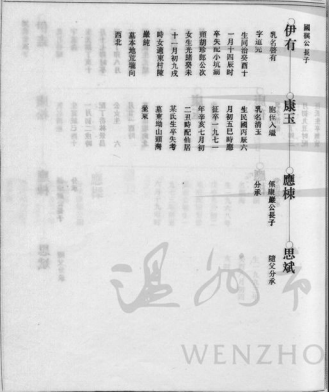 國振公長子
伊有
乳名碧有
字逗元
生同治癸酉十
一月十四辰时
卒失配小坑頭
頭胡珍郎公次
女生光緒癸未
十一月初九戌
時女適東村陳
嚴純
墓本地荒塆向
西北
康玉
胞侄入繼
乳名清玉
生民國丙辰六
月初五巳時應
征卒一九七一
年辛亥七月初
二丑時配仙居
某氏生卒失考
墓東坳山頭灣
坐東
應棟
係康嚴公長子
分承
思斌
隨父分承
温州市
WENZHO